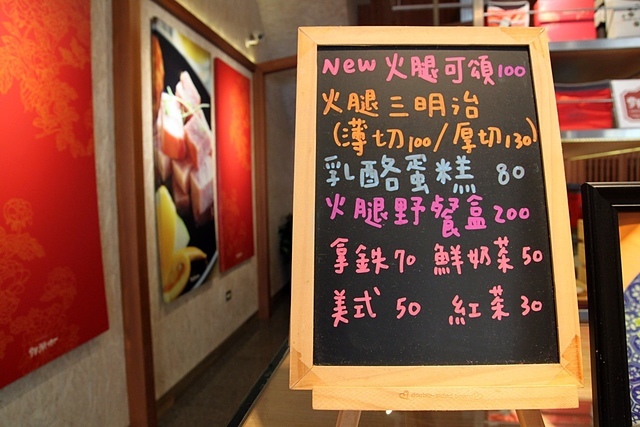 New 火腿可頌 100
火腿三明治
(薄切100/厚切130)
乳酪蛋糕 80
火腿野餐盒 200
拿鉄 70 鮮奶茶 50
美式 50 紅茶 30